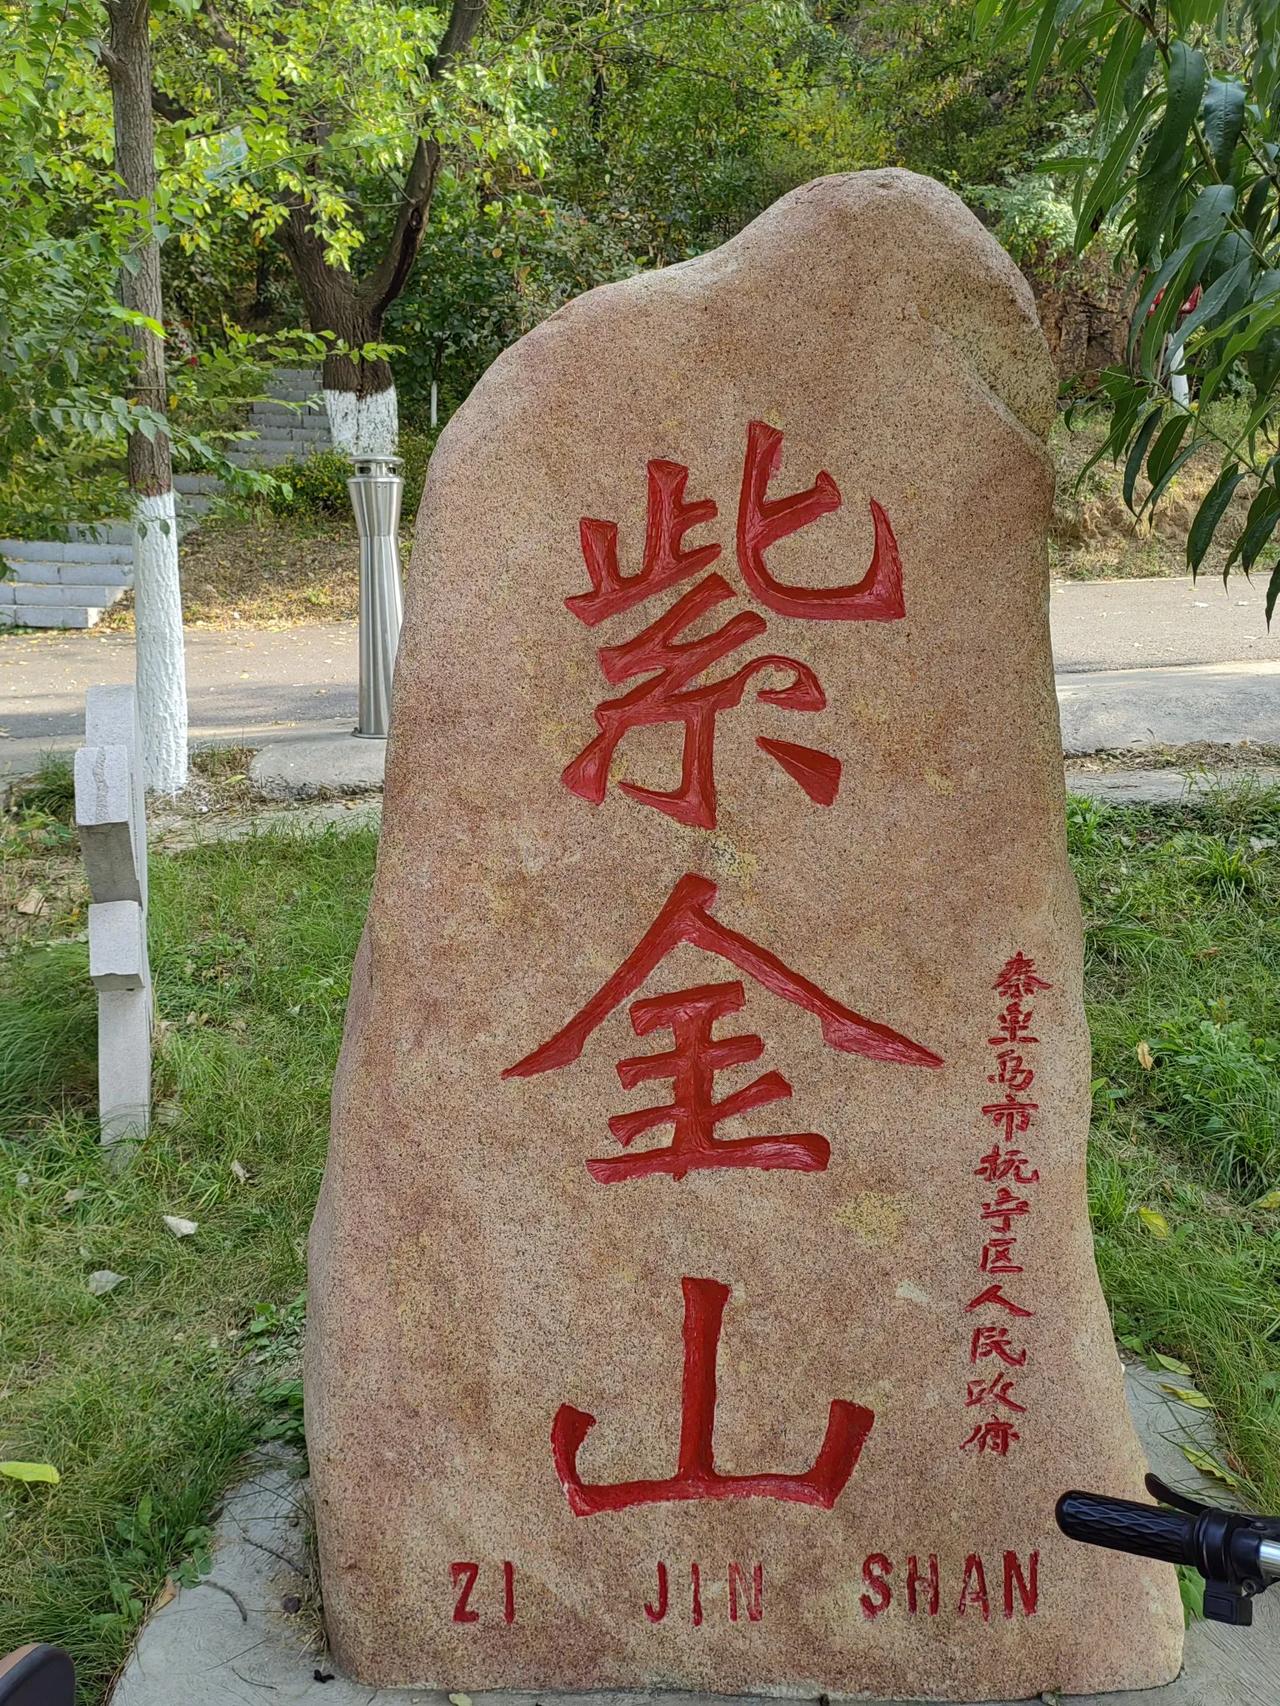 紫金山
秦皇岛市抚宁区人民政府
ZI JIN SHAN